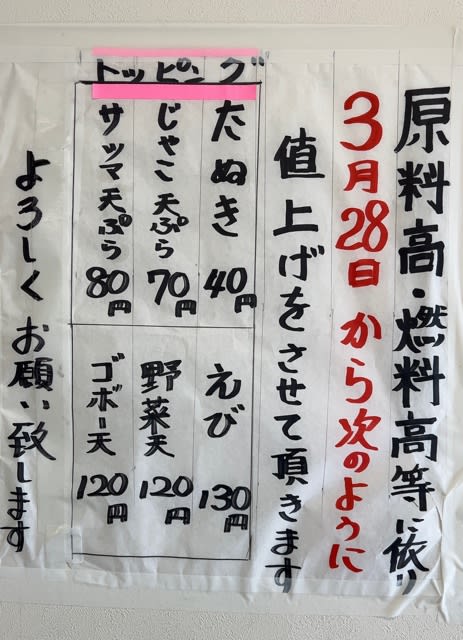 原料高・燃料高等に依り
3月28日から次のように
値上げをさせて頂きます
トッピング
たぬき 40円
じゃこ天ぷら 70円
サツマ天ぷら 80円
えび 130円
野菜天 120円
ゴボー天 120円
よろしくお願い致します